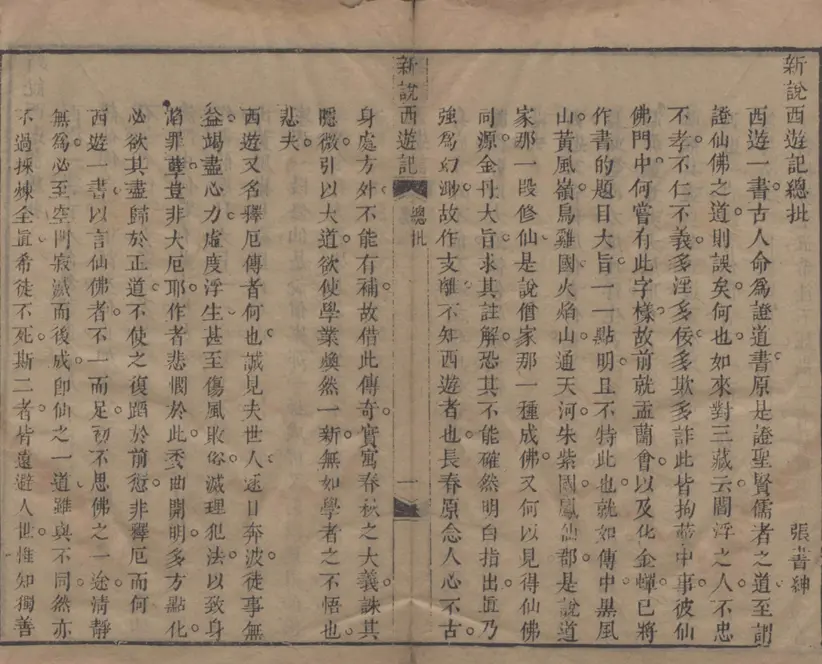 新說西遊記總批
張書紳
西遊一書。古人命為證道書。原是證聖賢儒者之道。至謂
證仙佛之道則誤矣。何也。如來對三藏云。閻浮之人。不忠
不孝。不仁不義。多淫多佞。多欺多詐。此皆拘蔽中事。彼仙
佛門中。何嘗有此字樣。故前就盂蘭會。以及化金蟬。已將
作書的題目大旨。一一點明。且不特此也。就如傳中黑風
山黃風嶺烏雞國火焰山通天河朱紫國鳳仙郡。是說道
家那一段修仙。是說僧家那一種成佛。又何以見得仙佛
同源。金丹大旨。求其註解。恐其不能確然明白指出。真乃
強為幻渺。故作支離。不知西遊者也。長春原念人心不古。
新說西遊記
總批
一
身處方外。不能有補。故借此傳奇。實寓春秋之大義。誅其
隱微。引以大道。欲使學業煥然一新。無如學者之不悟也。
悲夫。
西遊又名釋厄傳者何也。誠見夫世人。逐日奔波。徒事無
益。竭盡心力。虛度浮生。甚至傷風敗俗。滅理犯法。以致身
陷罪孽。豈非大厄耶。作者悲憫於此。委曲開明。多方點化。
必欲其盡歸於正道。不使之復蹈於前愆。非釋厄而何
西遊一書。以言仙佛者。不一而足。初不思佛之一途。清靜
無為。必至空門寂滅而後成。即仙之一道。雖與不同。然亦
不過採煉全真。希徒不死。斯二者。皆遠避人世。惟知獨善